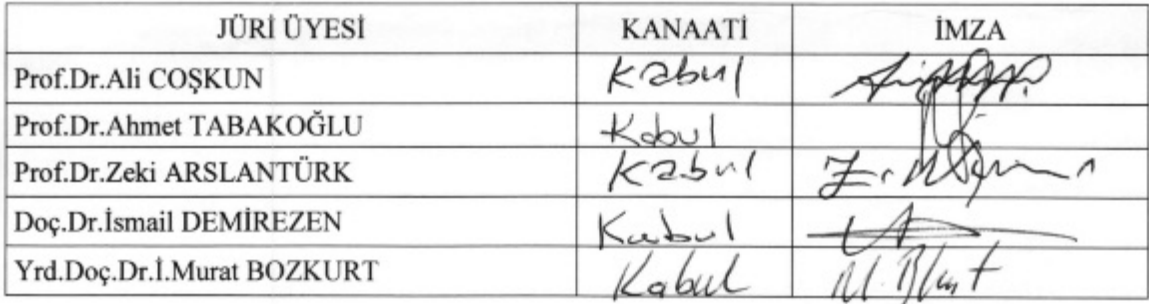 JÜRİ ÜYESİ KANAATİ İMZA
Prof.Dr.Ali COŞKUN Kabul
Prof.Dr.Ahmet TABAKOĞLU Kabul
Prof.Dr.Zeki ARSLANTÜRK Kabul
Doç.Dr.İsmail DEMİREZEN Kabul
Yrd.Doç.Dr.İ.Murat BOZKURT Kabul